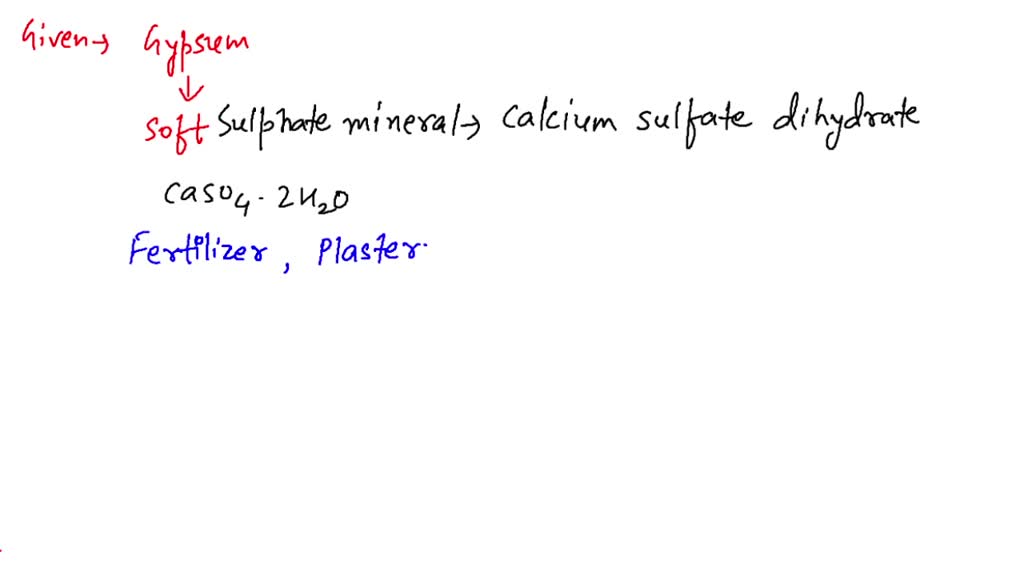 Given → Gypsum
↓
Soft Sulphate mineral → Calcium sulfate dihydrate
CaSO₄·2H₂O
Fertilizer, Plaster